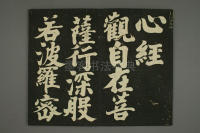 心經
觀自在菩
薩行深般
若波羅蜜